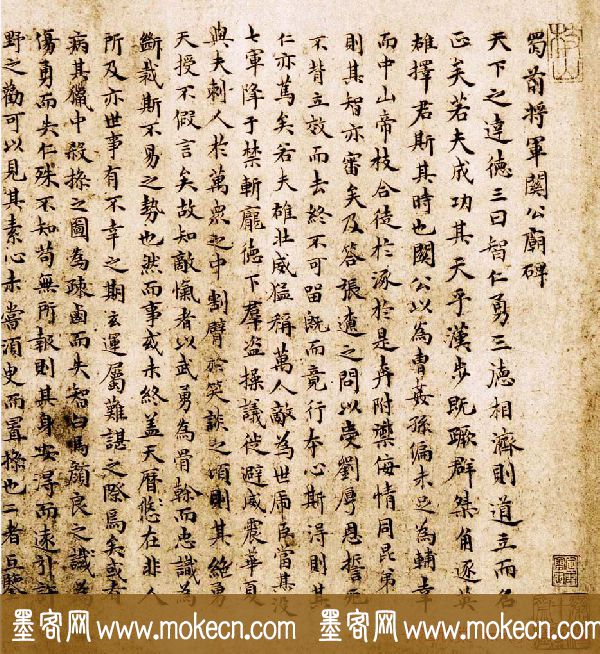 蜀前將軍關公廟碑
天下之達德三曰智仁勇三德相濟則道立而名
正矣若夫成功其天乎漢步既蹶群桀角逐英
雄擇君斯其時也關公以為曹姦孫偏未足為輔幸
而中山帝枝合徒於涿於是奔附禦侮情同昆弟
則其智亦審矣及答張遼之問以受劉厚恩誓死
不背立效而去終不可留既而竟行本心斯得則其
仁亦篤矣若夫雄壯威猛稱萬人敵為世虎臣當其沒
七軍降于禁斬龐德下羣盜操議徙避威震華夏
與夫刺人於萬衆之中割臂於笑談之頃則其絶勇
天授不假言矣故知敵愾者以武勇為骨榦而忠識為
斷裁斯不易之勢也然而事或未終蓋天在非人
所及亦世事有不幸之期玄運屬難諶之際焉矣或有
病其獵中殺操之圖為疎鹵而失智白馬顔良之為
傷勇而失仁殊不知苟無所報則其身安得而遂引
野之勸可以見其素心未嘗須臾而置操也二者互
墨客网 www.mokecn.com 墨客网 www.mokecn.com